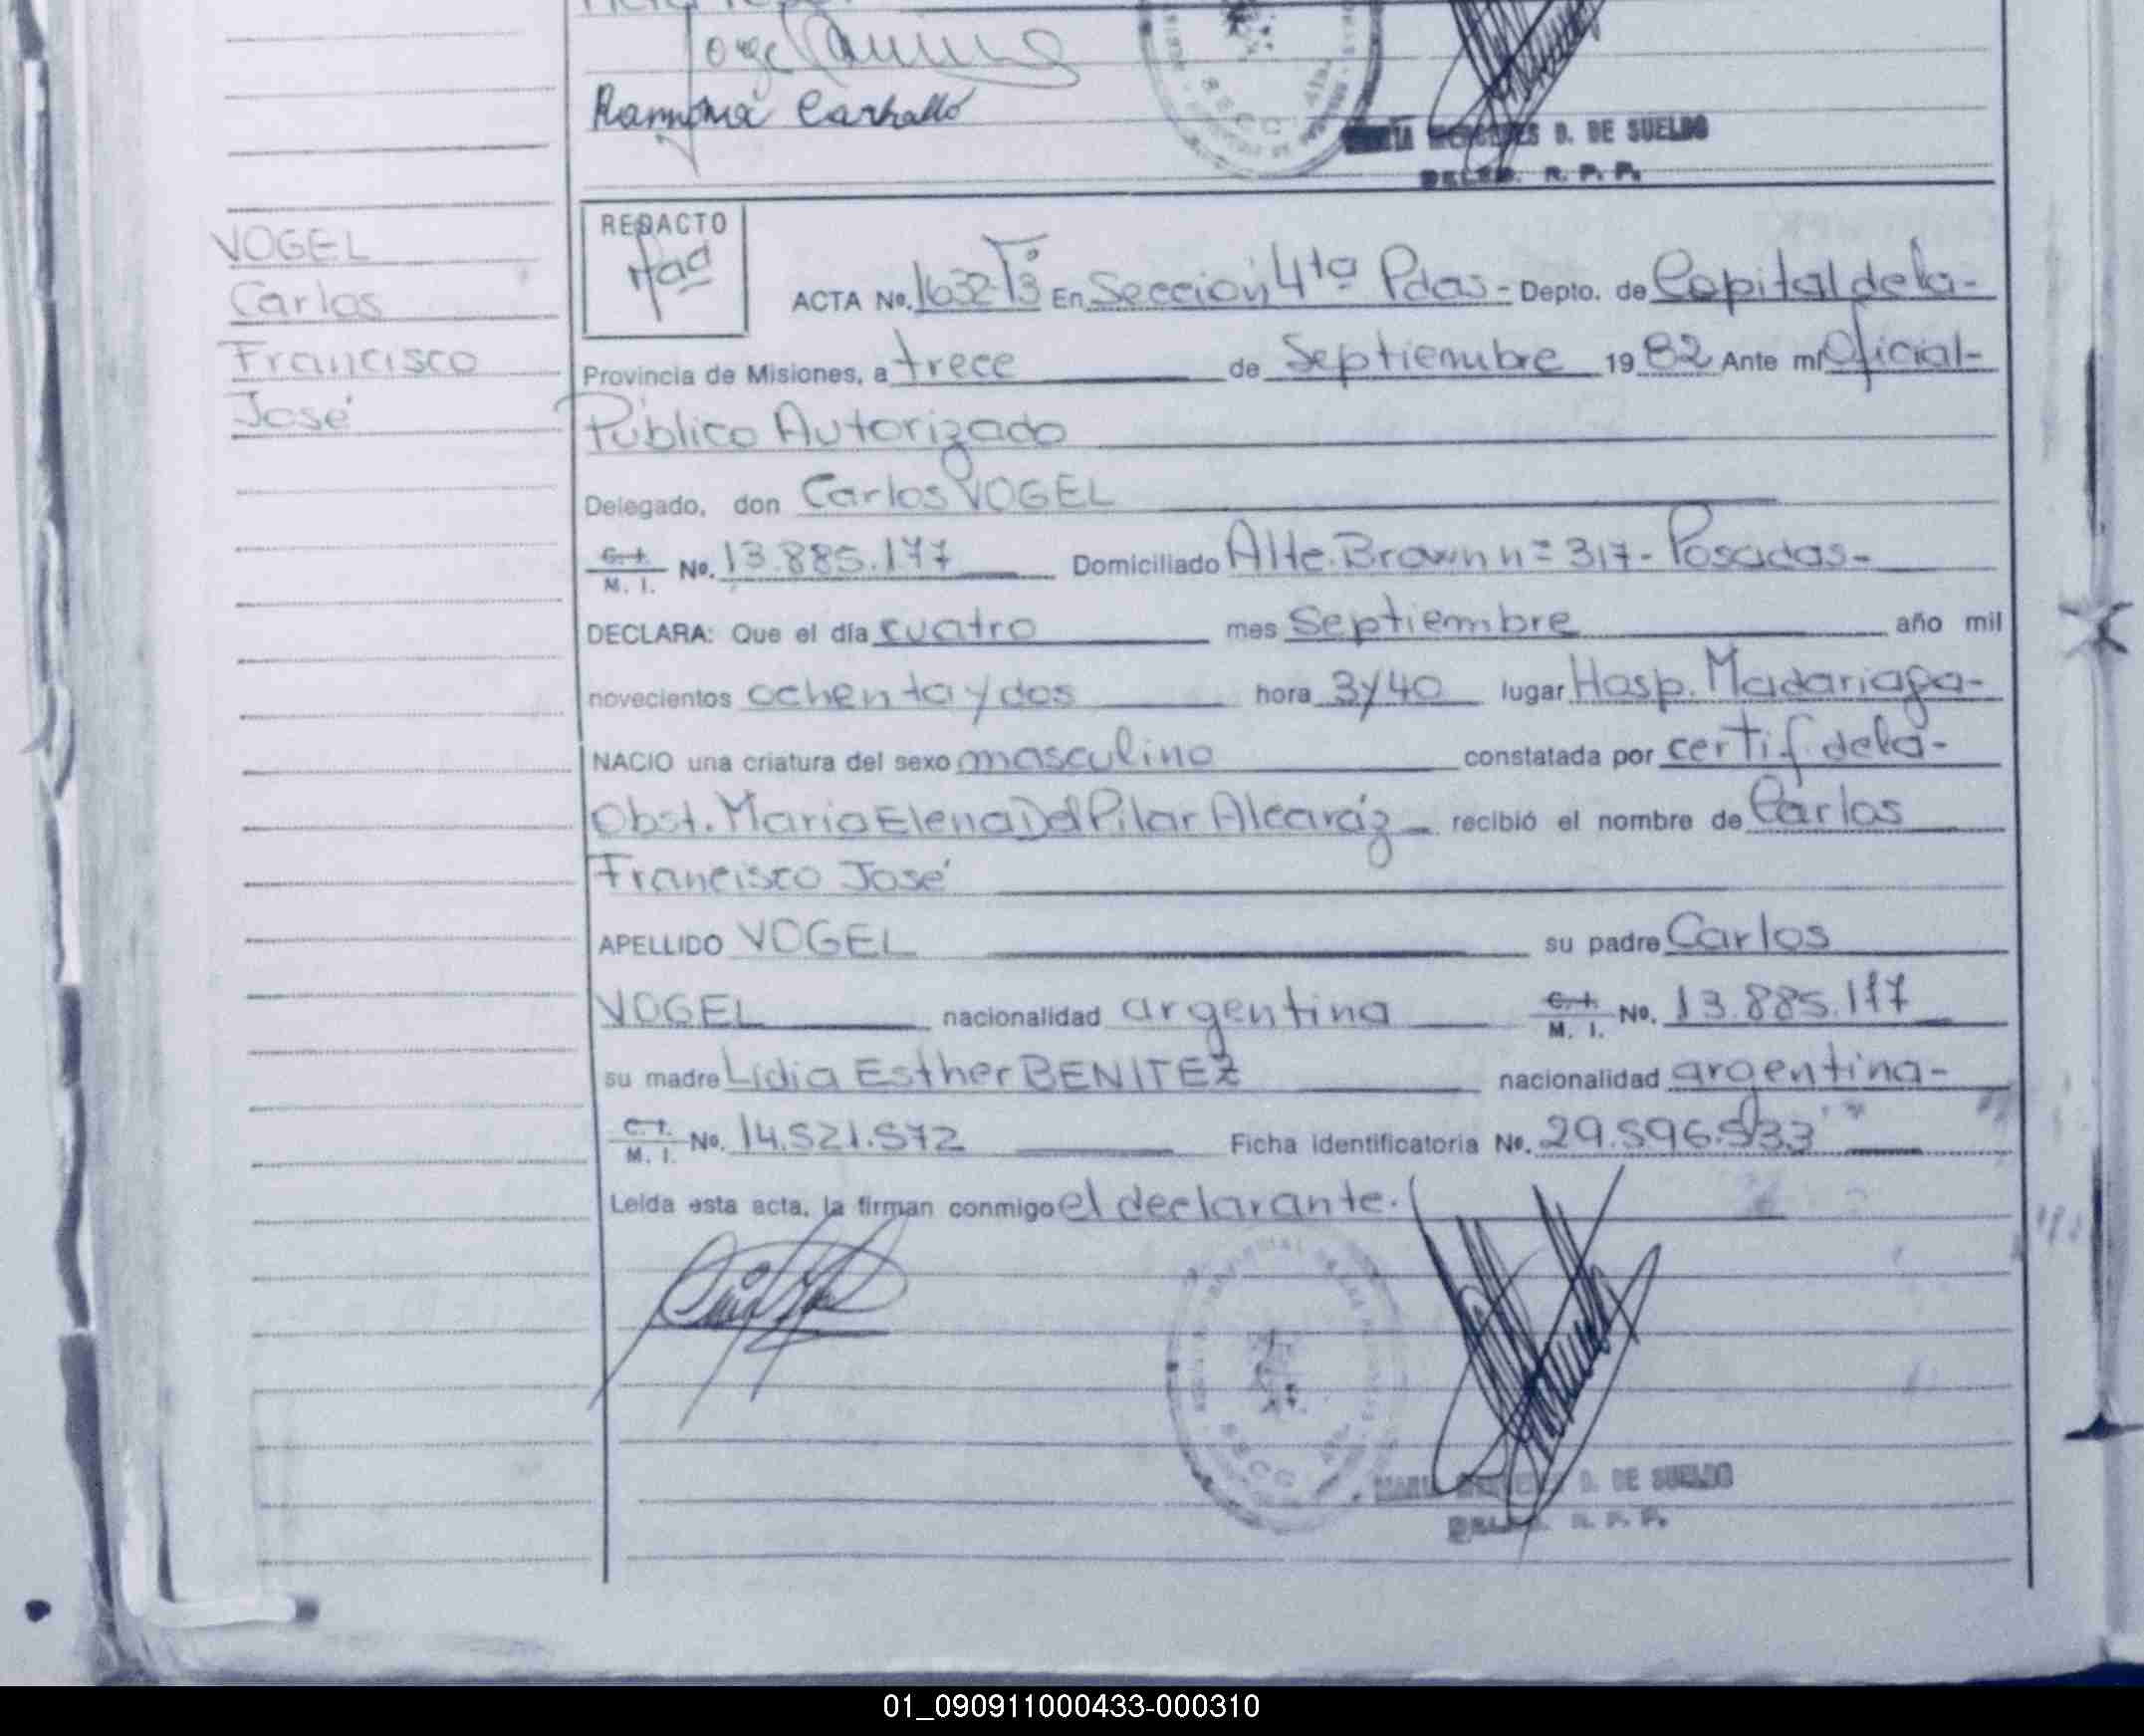 Jorge Ramirez
Ramona Carballo
MARÍA MERCEDES D. DE SUELDO
DELEG. R. P. P.
VOGEL
Carlos
Francisco
José
REDACTO
ACTA No. 1632 Tº3 En Sección 4ta Pdas- Depto. de Capital de la-
Provincia de Misiones, a trece de Septiembre 1982 Ante mí Oficial-
Público Autorizado
Delegado, don Carlos VOGEL
C. I. M. I. No. 13.885.177 Domiciliado Alte. Brown nº 317- Posadas-
DECLARA: Que el día cuatro mes Septiembre año mil
novecientos ochenta y dos hora 3y40 lugar Hosp. Madariaga-
NACIO una criatura del sexo masculino constatada por certif. de la-
Obst. Maria Elena Del Pilar Alcaráz recibió el nombre de Carlos
Francisco José
APELLIDO VOGEL su padre Carlos
VOGEL nacionalidad argentina C. I. M. I. No. 13.885.177
su madre Lidia Esther BENITEZ nacionalidad argentina-
C. I. M. I. No. 14.521.572 Ficha identificatoria No. 29.596.533
Leída esta acta, la firman conmigo el declarante.
MARÍA MERCEDES D. DE SUELDO
DELEG. R. P. P.
01_090911000433-000310